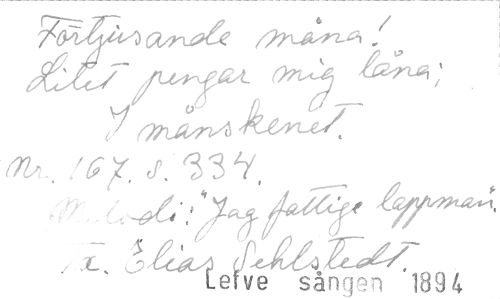 Förtjusande måna!
Litet pengar mig låna;
I månskenet.
Nr. 167. s. 334.
Melodi: "Jag fattige lappman".
Tx. Elias Sehlstedt.
Lefve sången 1894